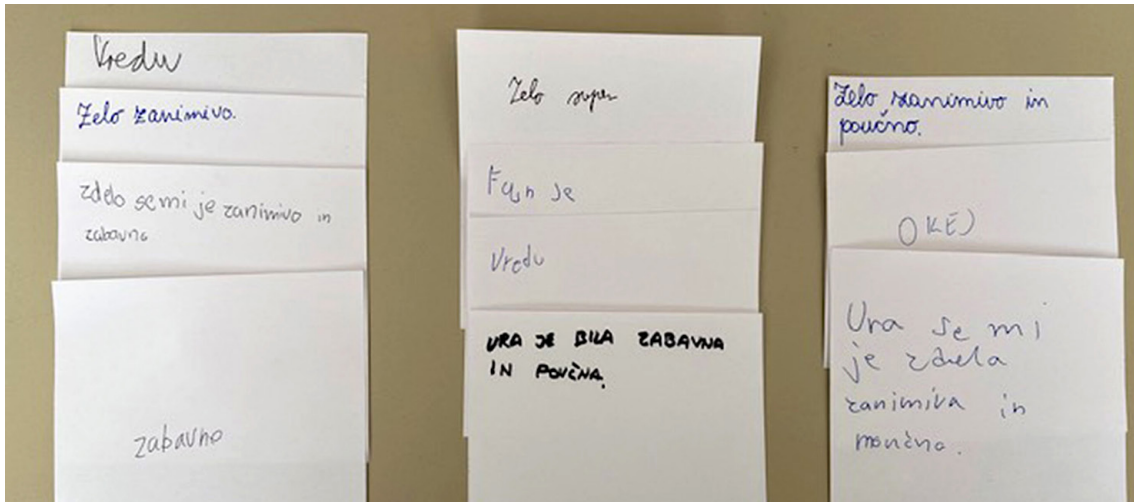 Vredu
Zelo zanimivo.
zdelo se mi je zanimivo in
zabavno
zabavno
Zelo super
Fajn je
Vredu
URA JE BILA ZABAVNA
IN POUČNA.
Zelo zanimivo in
poučno.
OKEJ
Ura se mi
je zdela
zanimiva in